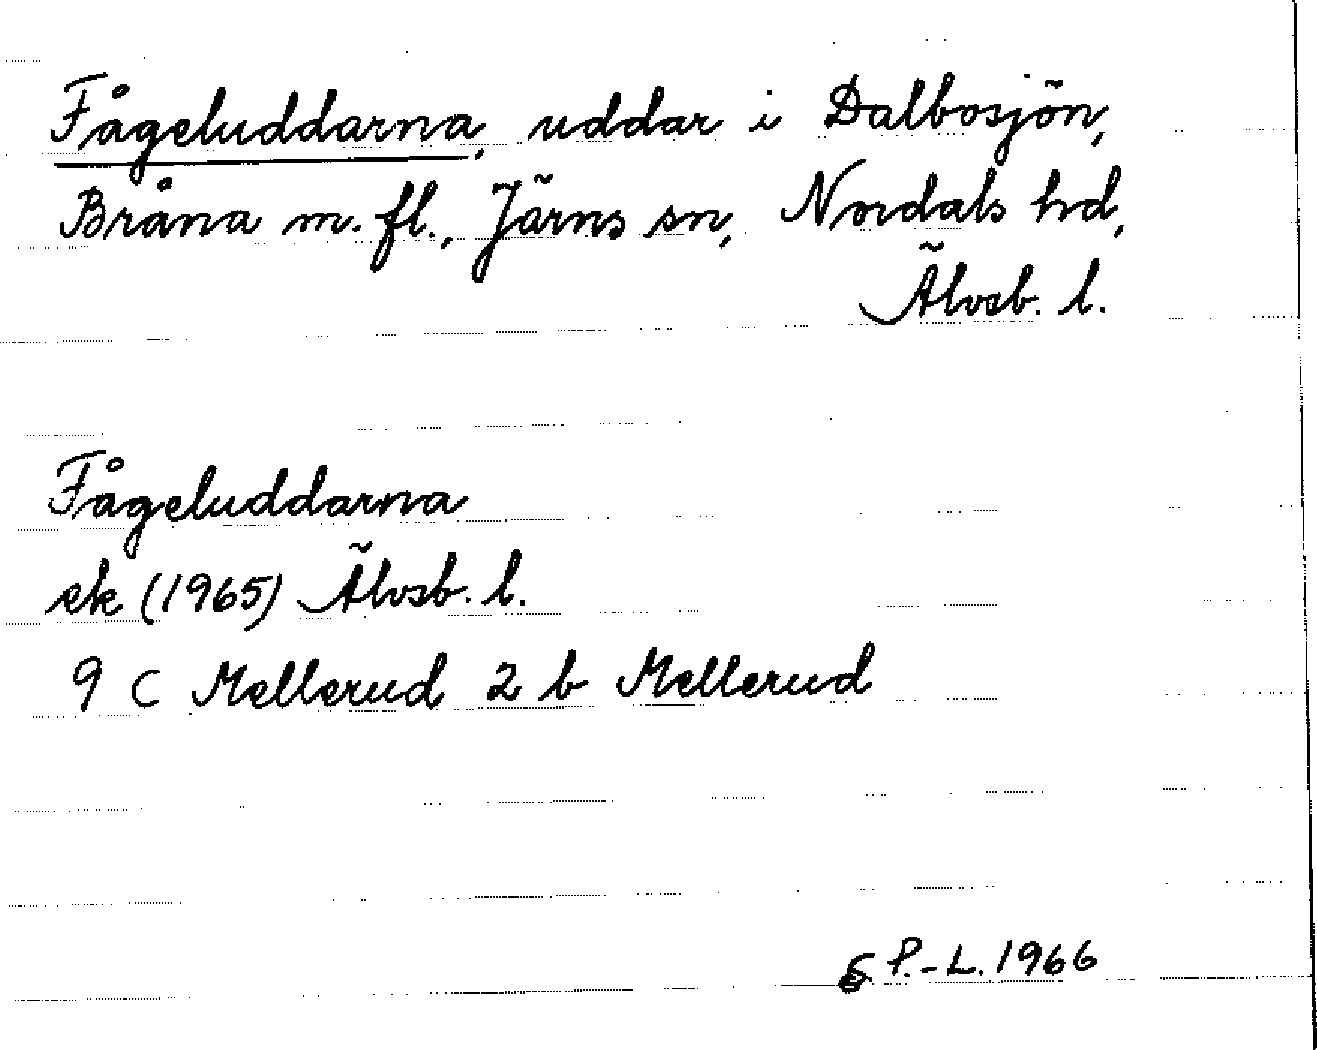 Fågeluddarna, uddar i Dalbosjön,
Bråna m. fl., Järns sn, Nordals hd,
Älvsb. l.
Fågeluddarna
ek (1965) Älvsb. l.
9 C Mellerud 2 b Mellerud
P.-L. 1966